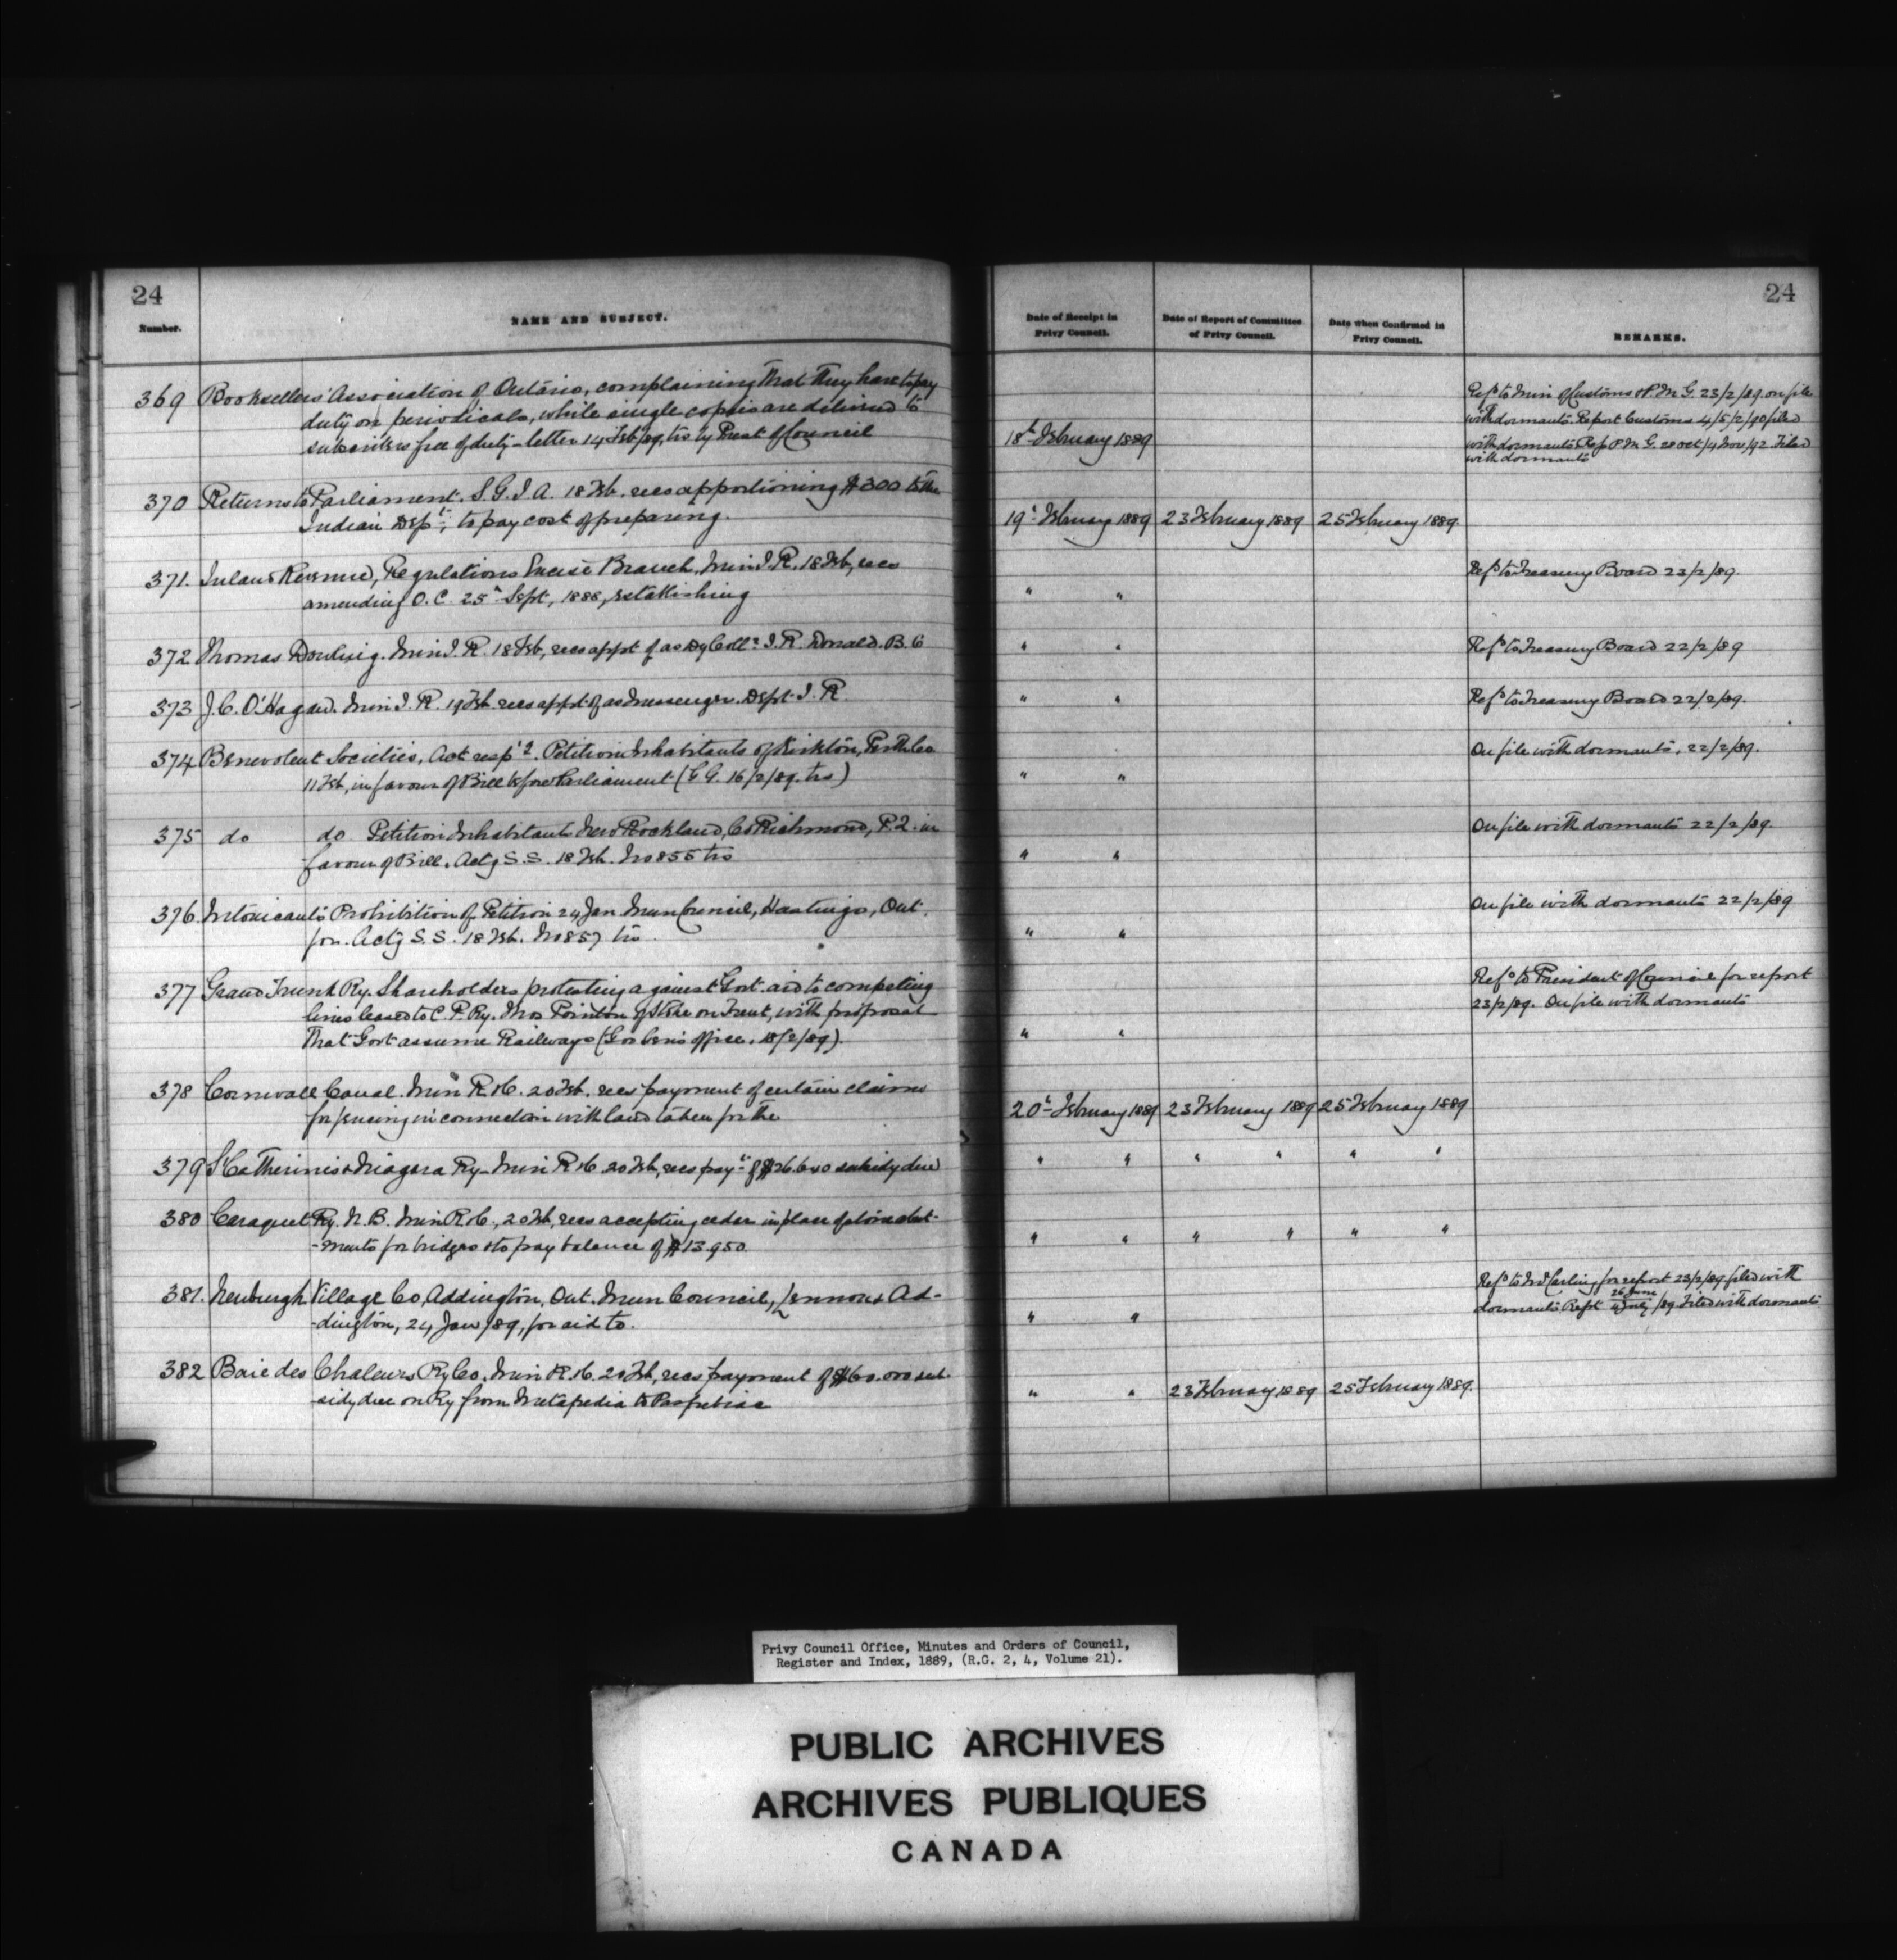 24
Number.
NAME AND SUBJECT.
Date of Receipt in
Privy Council.
Date of Report of Committee
of Privy Council.
Date when Confirmed in
Privy Council.
REMARKS.
24
369 Booksellers' Association of Ontario, complaining that they have to pay
duty on periodicals, while single copies are delivered to
subscribers free of duty - letter 14 Feb/89, trs by Prest of Council
18th February 1889
Refd to Min of Customs & P.M.G. 23/2/89. on file
with dormants. Report Customs 4/5/2/90 filed
with dormants Rep P.M.G. 28 Oct/4 Nov/92. Filed
with dormants
370 Returns to Parliament. S.G.I.A. 18 Feb. recs apportioning $300 to the
Indian Dept, to pay cost of preparing.
19th February 1889 23 February 1889 25 February 1889.
371. Inland Revenue, Regulations Excise Branch, Min I.R. 18 Feb, recs
amending O.C. 25th Sept, 1888, establishing
" "
Refd to Treasury Board 22/2/89.
372 Thomas Dowling. Min I.R. 18 Feb, recs appt of as Dy Collr I.R. Donald. B.C
" "
Refd to Treasury Board 22/2/89
373 J.C. O'Hagan. Min I.R. 19 Feb. recs appt of as Messenger. Dept I.R
" "
Refd to Treasury Board 22/2/89.
374 Benevolent Societies, Act respg. Petition Inhabitants of Kirkton, Perth Co
11 Feb, in favour of Bill before Parliament (G.G. 16/2/89. trs)
" "
On file with dormants, 22/2/89.
375 do do Petition Inhabitants New Rockland, Co Richmond, P.Q. in
favour of Bill. Actg S.S. 18 Feb. No 855 trs
" "
On file with dormants 22/2/89.
376. Intoxicants Prohibition of Petition 24 Jan Mun Council, Hastings, Ont.
for. Actg S.S. 18 Feb. No 857 trs.
" "
On file with dormants 22/2/89
377 Grand Trunk Ry. Shareholders protesting against Govt. aid to competing
lines leased to C.P.Ry. Thos Pointon of Stoke on Trent, with proposal
that Govt assume Railways (Gov Gen's office, 18/2/89).
" "
Refd to President of Council for report
23/2/89. On file with dormants
378 Cornwall Canal. Min R & C. 20 Feb. recs payment of certain claims
for fencing in connection with land taken for the
20th February 1889 23 February 1889 25 February 1889
379 St Catherines & Niagara Ry - Min R & C 20 Feb, recs payt of $26.640 subsidy due
" " " " " "
380 Caraquet Ry. N.B. Min R & C., 20 Feb, recs accepting cedar in place of stone abut-
-ments for bridges & to pay balance of $13.950.
" " " " " "
381. Newburgh Village Co, Addington, Ont. Mun Council, Lennox & Ad-
-dington, 24 Jan/89, for aid to.
" "
Refd to Mr Carling for report 23/2/89 filed with
dormants. Rept 26 June / 4 July /89. Filed with dormants
382 Baie des Chaleurs Ry Co. Min R & C. 20 Feb, recs payment of $60.000 sub-
-sidy due on Ry from Metapedia to Paspebiac
" " 23 February 1889 25 February 1889.
Privy Council Office, Minutes and Orders of Council,
Register and Index, 1889, (R.G. 2, 4, Volume 21).
PUBLIC ARCHIVES
ARCHIVES PUBLIQUES
CANADA